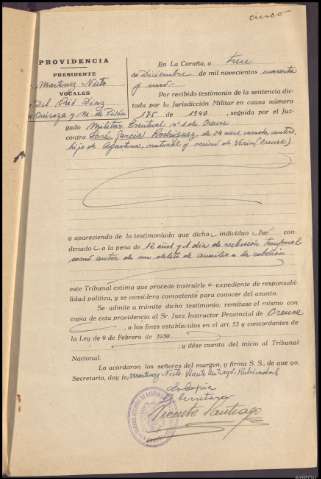 PROVIDENCIA
PRESIDENTE
Martinez Nieto
VOCALES
Del Rio Diaz
En La Coruña, a trece
de Diciembre de mil novecientos cuarenta
y uno.
Por recibido testimonio de la sentencia dic-
tada por la Jurisdicción Militar en causa número
175 de 1940, seguida por el Juz-
gado Militar Eventual nº 1 de Orense
contra José Garcia Rodriguez, de 24 años,
hijo de Agustina, natural y vecino de Verin (Orense)
y apareciendo de lo testimoniado que dicho individuo fué con-
denado a la pena de 12 años y 1 día de reclusión temporal
como autor de un delito de auxilio a la rebelión
este Tribunal estima que procede instruirle expediente de responsabi-
lidad política, y se considera competente para conocer del asunto.
Se admite a trámite dicho testimonio, remítase el mismo con
copia de esta providencia al Sr. Juez Instructor Provincial de Orense
, a los fines establecidos en el art. 53 y concordantes de
la Ley de 9 de Febrero de 1939.
, y dése cuenta del inicio al Tribunal
Nacional.
Lo acordaron los señores del margen y firma S. S. de que yo,
Secretario, doy fe. Martinez Nieto. Vicente Santiago. Rubricados
Es copia
El Secretario
Vicente Santiago